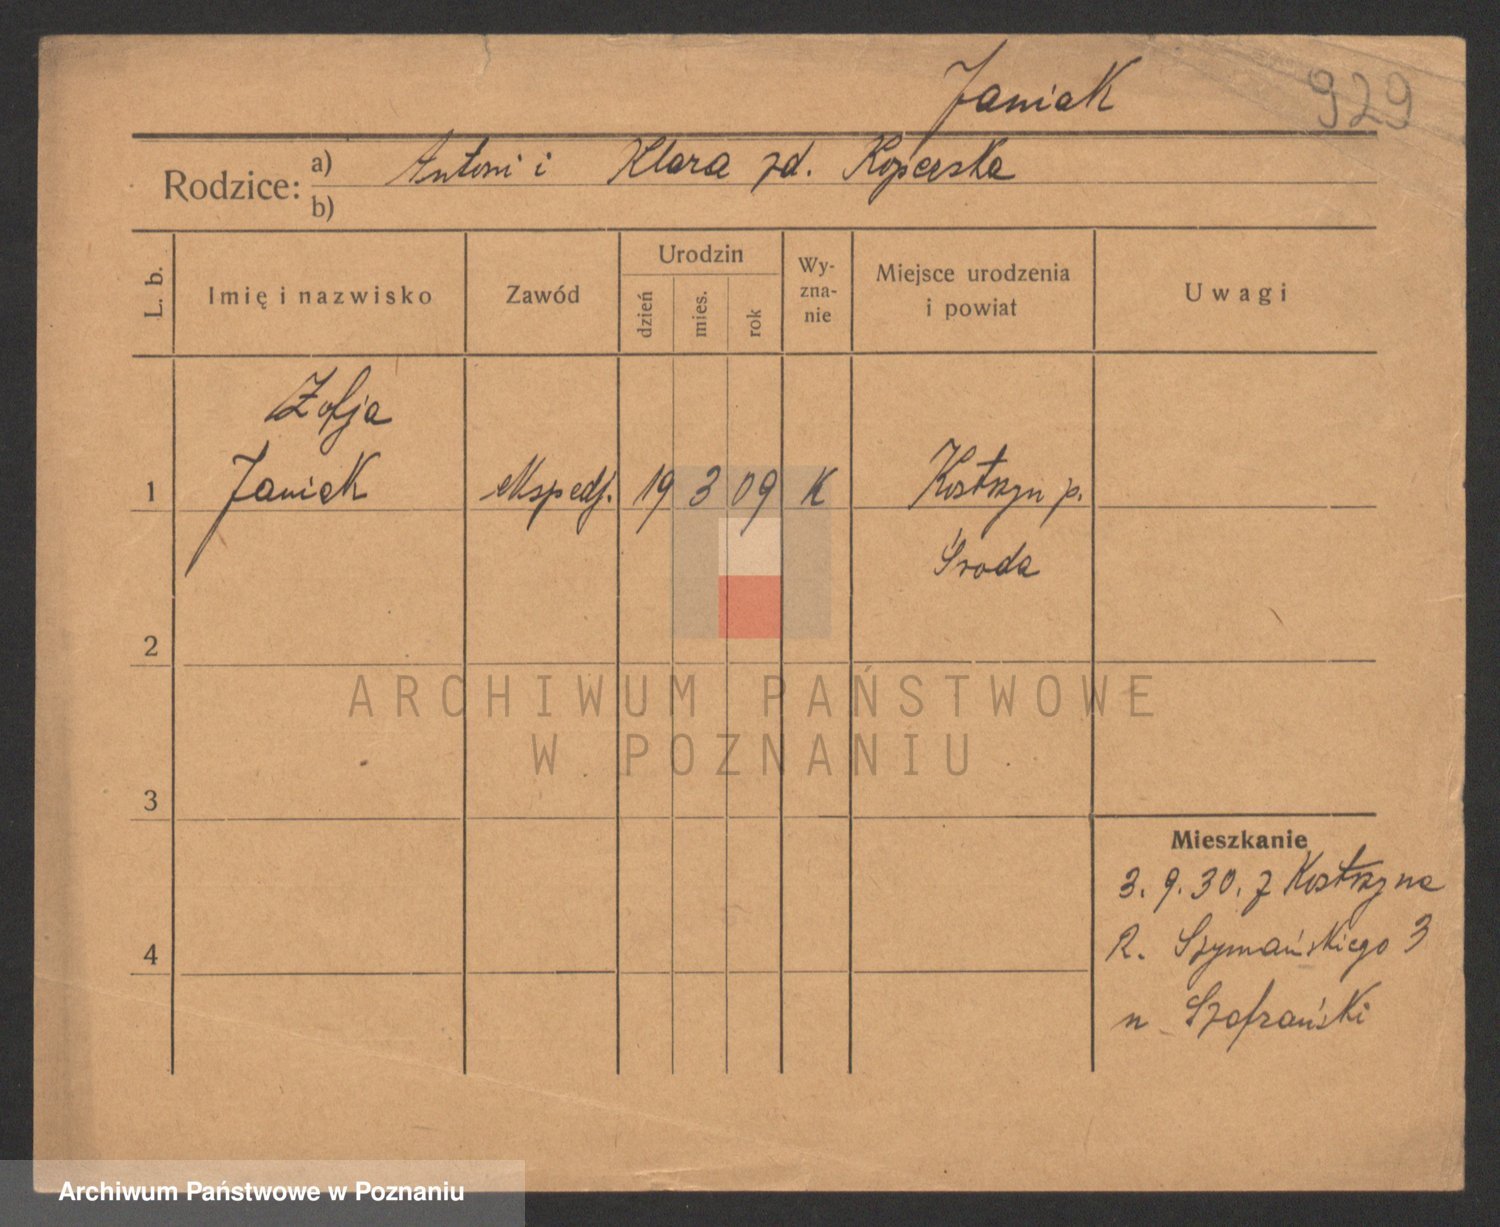 Janiak
929
Rodzice: a) Antoni i Klara zd. Koperska
b)
L. b.
Imię i nazwisko
Zawód
Urodzin
dzień
mies.
rok
Wy-
zna-
nie
Miejsce urodzenia
i powiat
Uwagi
Zofja
1 Janiak ekspedj. 19 3 09 K Kostrzyn p.
Środa
2
3
4
Mieszkanie
3. 9. 30. z Kostrzyna
R. Szymańskiego 3
n Szafrański
ARCHIWUM PAŃSTWOWE
W POZNANIU
Archiwum Państwowe w Poznaniu